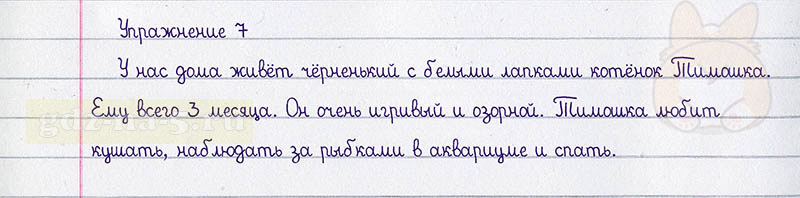 Упражнение 7
У нас дома живёт чёрненький с белыми лапками котёнок Тимашка.
Ему всего 3 месяца. Он очень игривый и озорной. Тимашка любит
кушать, наблюдать за рыбками в аквариуме и спать.